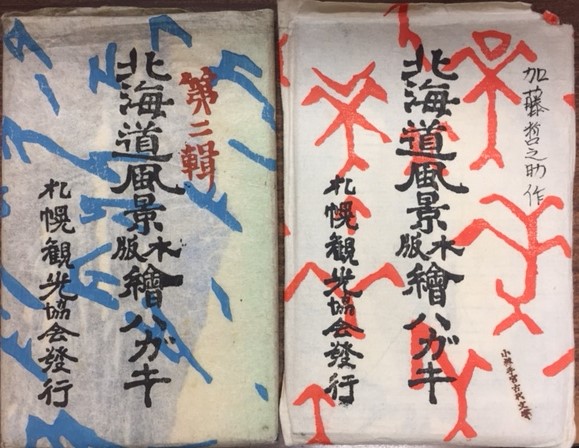 第二輯
北海道風景木版繪ハガキ
札幌観光協会發行
加藤哲之助作
北海道風景木版繪ハガキ
札幌観光協会發行
小樽手宮古代文字